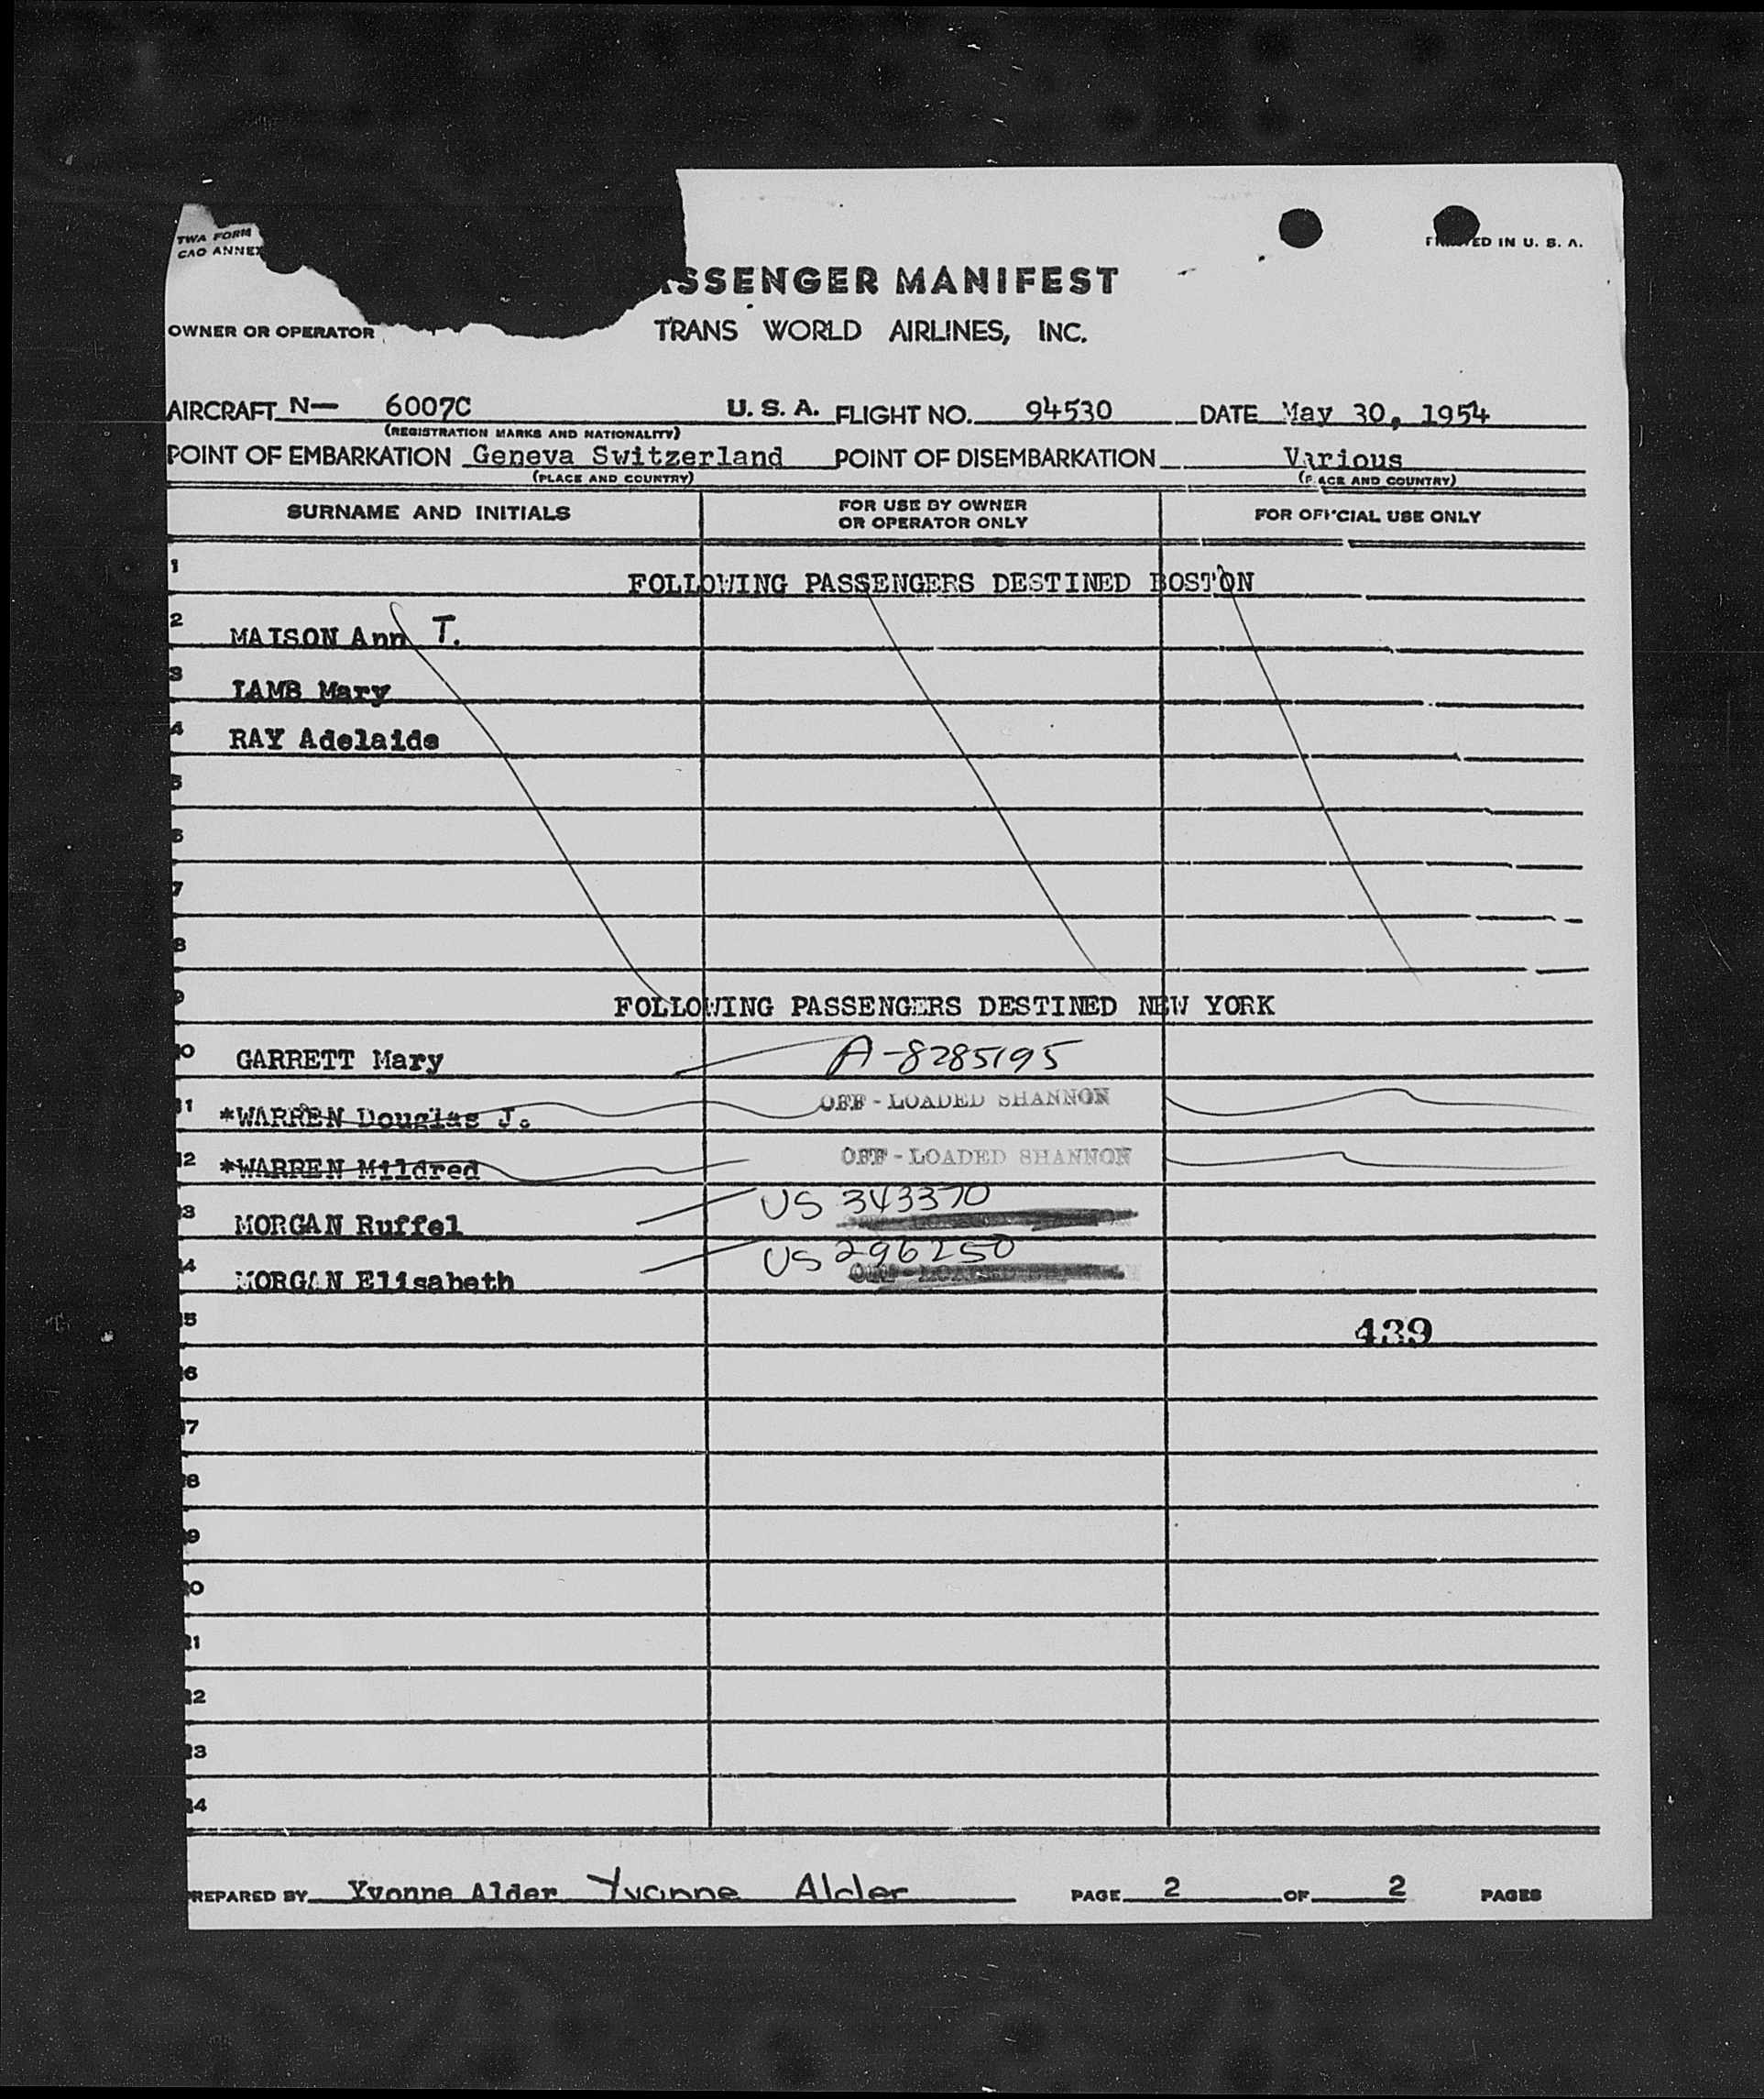 TWA FORM
CAO ANNEX
PRINTED IN U. S. A.
SSENGER MANIFEST
OWNER OR OPERATOR
TRANS WORLD AIRLINES, INC.
AIRCRAFT N— 6007C U. S. A. FLIGHT NO. 94530 DATE May 30, 1954
(REGISTRATION MARKS AND NATIONALITY)
POINT OF EMBARKATION Geneva Switzerland POINT OF DISEMBARKATION Various
(PLACE AND COUNTRY) (PLACE AND COUNTRY)
SURNAME AND INITIALS FOR USE BY OWNER OR OPERATOR ONLY FOR OFFICIAL USE ONLY
1 FOLLOWING PASSENGERS DESTINED BOSTON
2 MAISON Ann T.
3 LAMB Mary
4 RAY Adelaide
5
6
7
8
9 FOLLOWING PASSENGERS DESTINED NEW YORK
10 GARRETT Mary A-8285195
11 *WARREN Douglas J. OFF - LOADED SHANNON
12 *WARREN Mildred OFF - LOADED SHANNON
13 MORGAN Ruffel US 343370
14 MORGAN Elisabeth US 296250
15 439
16
17
18
19
20
21
22
23
24
PREPARED BY Yvonne Alder Yvonne Alder PAGE 2 OF 2 PAGES